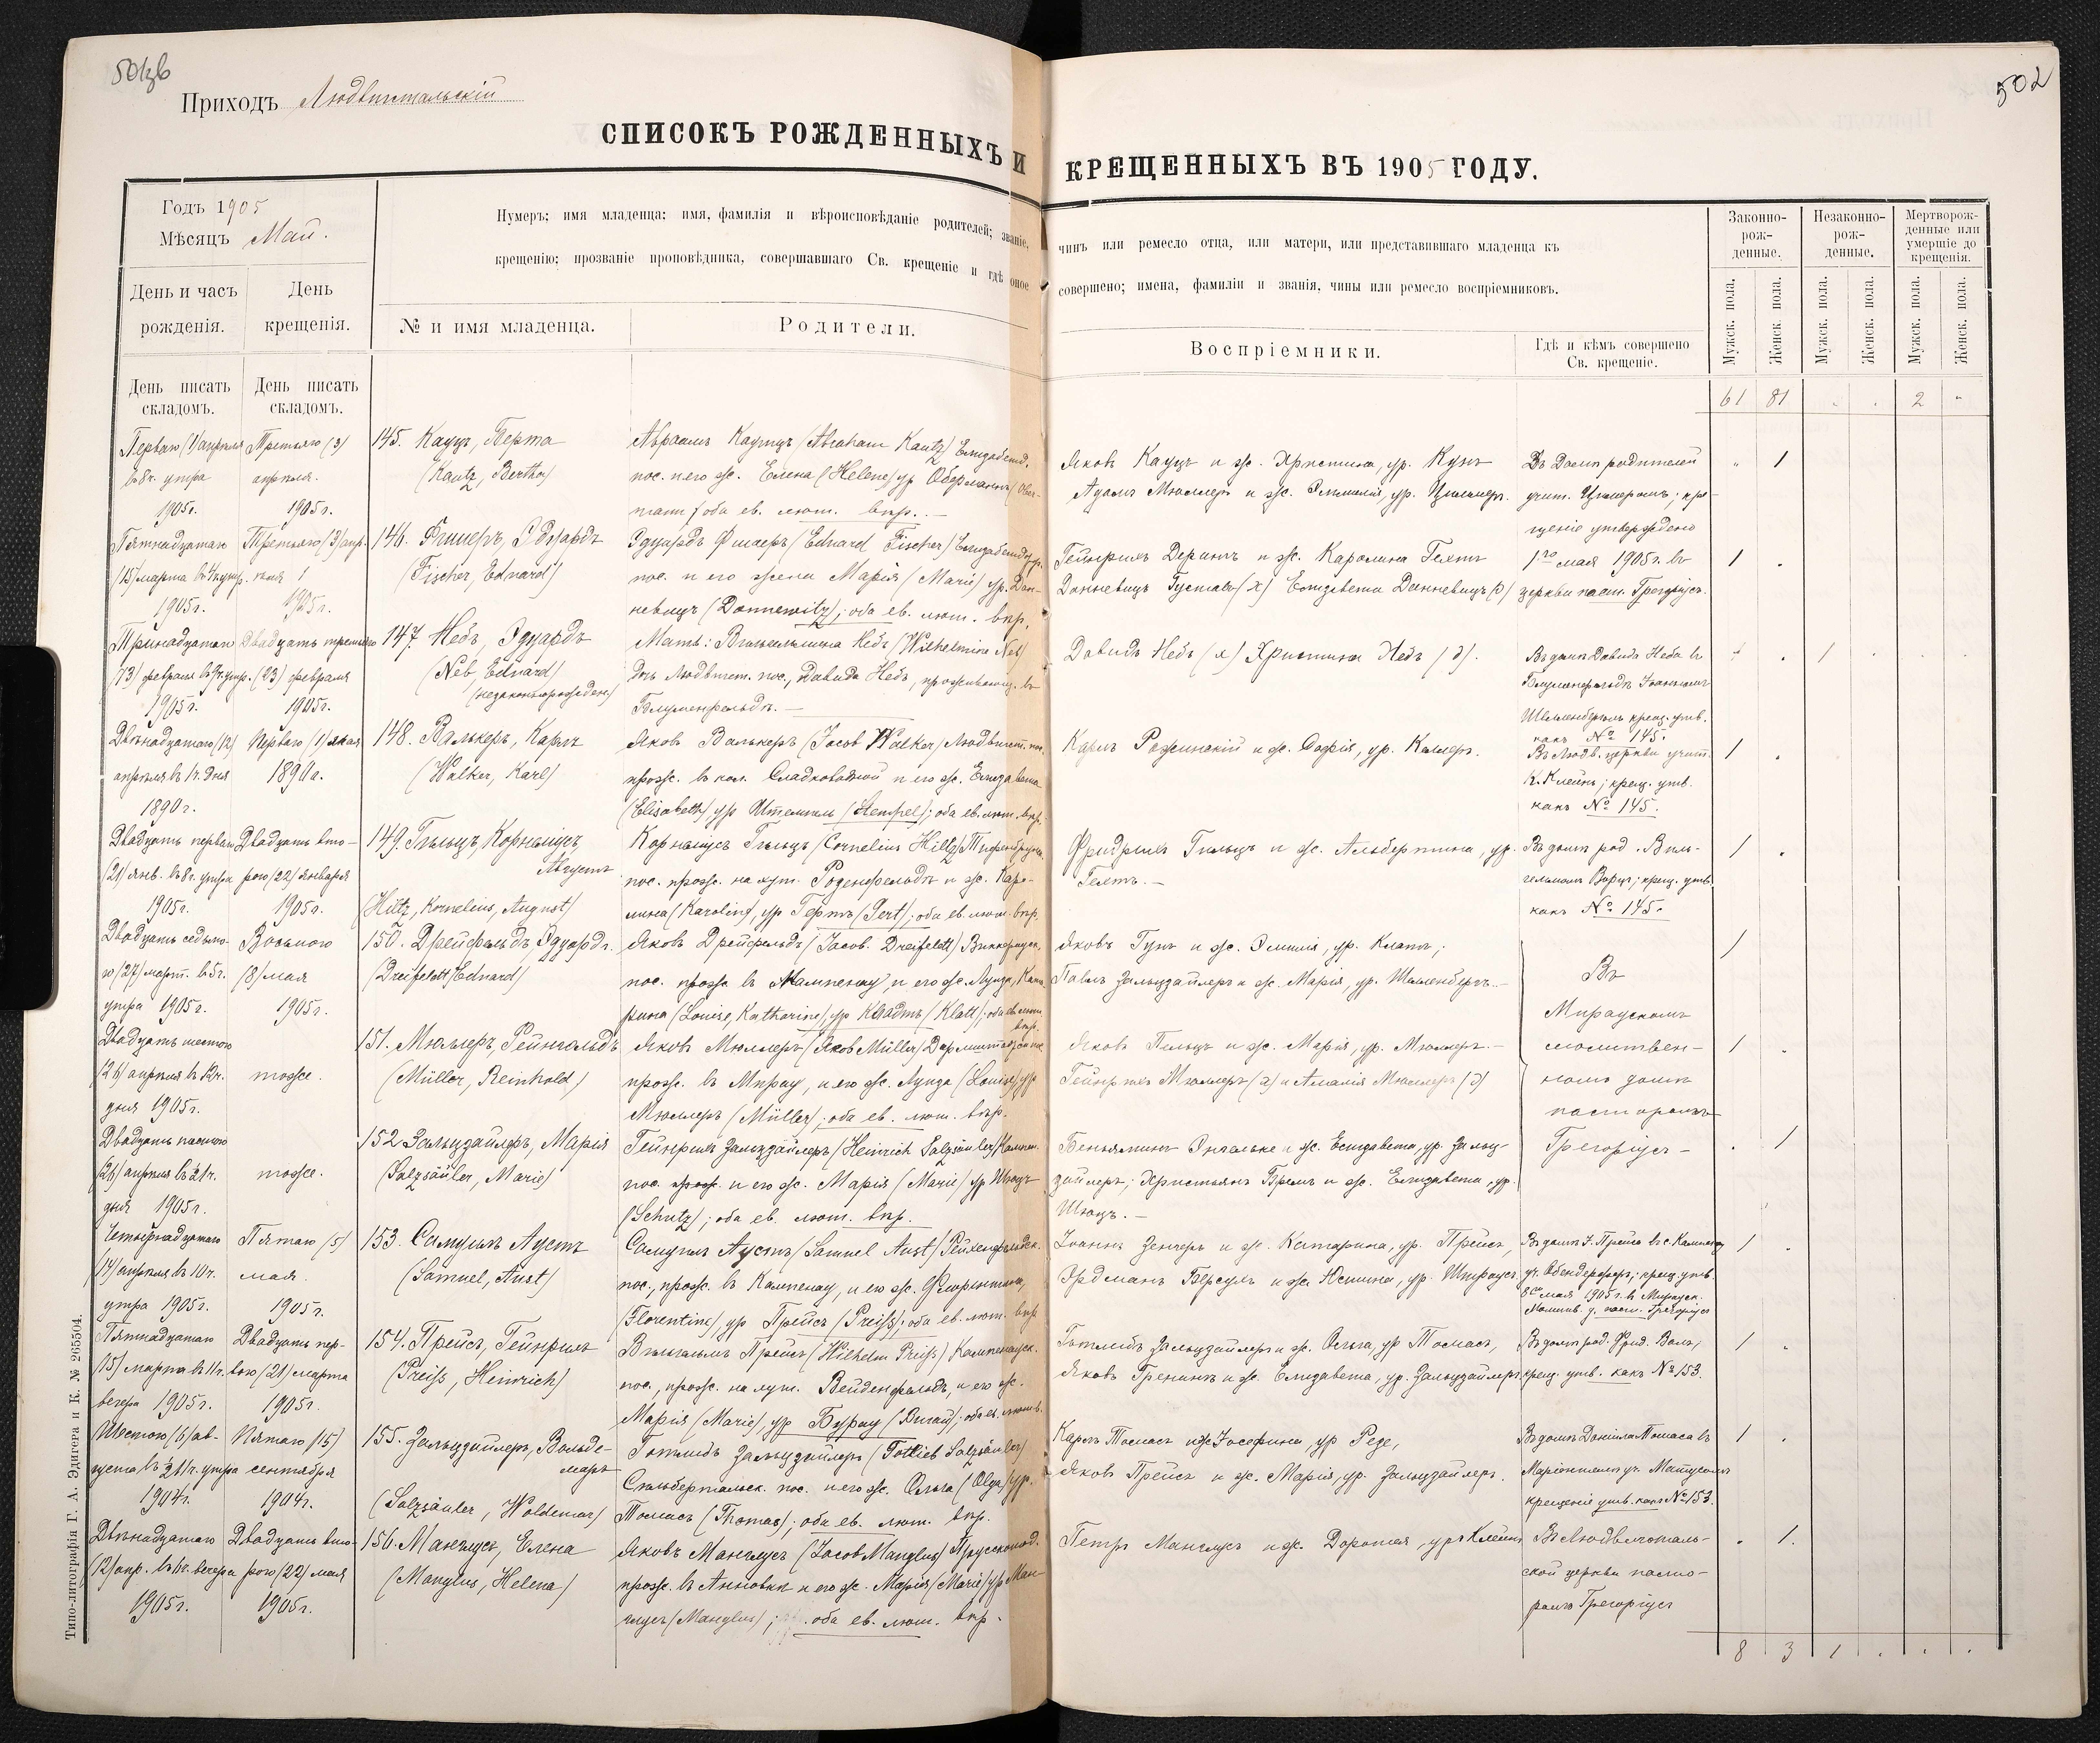 501об
502
Приходъ Людвигстальскій
СПИСОКЪ РОЖДЕННЫХЪ И КРЕЩЕННЫХЪ ВЪ 1905 ГОДУ.
Годъ 1905
Мѣсяцъ Май.
Нумеръ; имя младенца; имя, фамилія и вѣроисповѣданіе родителей; званіе, чинъ или ремесло отца, или матери, или представившаго младенца къ
крещенію; прозваніе проповѣдника, совершавшаго Св. крещеніе и гдѣ оное совершено; имена, фамиліи и званія, чины или ремесло воспріемниковъ.
День и часъ
рожденія.
День
крещенія.
№ и имя младенца.
Родители.
Воспріемники.
Гдѣ и кѣмъ совершено
Св. крещеніе.
Законно-
рож-
денные.
Незаконно-
рож-
денные.
Мертворож-
денные или
умершіе до
крещенія.
Мужск. пола.
Женск. пола.
Мужск. пола.
Женск. пола.
Мужск. пола.
Женск. пола.
День писать
складомъ.
День писать
складомъ.
61 81 . . 2 -
Перваго (1) апрѣля
в 8 ч. утра
1905 г.
Третьяго (3)
апрѣля.
1905 г.
145. Кауцъ, Берта
(Kautz, Bertha)
Авраамъ Кауцъ (Abraham Kautz) Елизабетд.
пос. и его ж. Елена (Helene) ур. Оберманъ (Ober-
mann) оба ев. лют. вѣр.
Яковъ Кауцъ и ж. Христина, ур. Кунъ
Адамъ Мюллеръ и ж. Эмилія, ур. Циммеръ.
Въ домѣ родителей
учит. Цимеромъ; кре-
щеніе утверждено
1го мая 1905 г. въ
церкви паст. Грегоріусъ.
1
Пятнадцатаго
(15) марта
1905 г.
Третьяго (3) апр.
1905 г.
146. Фишеръ, Эдуардъ
(Fischer, Eduard)
Эдуардъ Фишеръ (Eduard Fischer) Елизабетдор.
пос. и его жена Марія (Marie) ур. Дан-
невицъ (Dannewitz); оба ев. лют. вѣр.
Гейнрихъ Дерингъ и ж. Каролина Гехтъ
Данневицъ Густавъ (х) Елизавета Данневицъ (д)
1 .
Тринадцатаго
(13) февраля
1905 г.
Двадцать третьяго
(23) февраля
1905 г.
147. Небъ, Эдуардъ
(Neb, Eduard)
(незаконнорожден.)
Мать: Вильгельмина Небъ (Wilhelmine Neb)
Дочь Людвигст. пос., Давида Небъ, проживающ. въ
Блуменфельдѣ. —
Давидъ Небъ (х) Христина Небъ (д).
Въ домѣ Давида Неба въ
Блуменфельдѣ Іоанномъ
Шеленбергомъ крещ. утв.
какъ № 145.
. 1 . . .
Двѣнадцатаго (12)
апрѣля въ 1 ч. дня
1890 г.
Перваго (1) мая
1890 г.
148. Валькеръ, Карлъ
(Walker, Karl)
Яковъ Валькеръ (Jacob Walker) Людвигст. пос.
прож. въ кол. Сладководной и его ж. Елизавета
(Elisabeth) ур. Штемпель (Stempel); оба ев. лют. вѣр.
Карлъ Рожинскій и ж. Софія, ур. Келлеръ.
Въ Людв. церкви учит.
К. Клейнъ; крещ. утв.
какъ № 145.
1 .
Двадцать перваго
(21) янв. въ 8 ч. утра
1905 г.
Двадцать вто-
рого (22) января
1905 г.
149. Гильцъ, Корнеліусъ,
Августъ
(Hiltz, Kornelius, August)
Корнеліусъ Гильцъ (Cornelius Hiltz) Тифенбрунск.
пос. прож. на хут. Розенфельдъ и ж. Каро-
лина (Karoline), ур. Гертъ (Gert); оба ев. лют. вѣр.
Фридрихъ Гильцъ и ж. Альбертина, ур.
Гехтъ. —
Въ домѣ род. Виль-
гельмомъ Ворцъ; крещ. утв.
какъ № 145.
1 .
Двадцать седьмо-
го (27) март. в 5 ч.
утра 1905 г.
Восьмого
(8) мая
1905 г.
150. Дрейфельдъ, Эдуардъ.
(Dreifeldt Eduard)
Яковъ Дрейфельдъ (Jacob Dreifeldt)
пос. прож. въ Кампенау и его ж. Луиза, Кате-
рина (Louise, Katharine), ур. Клаттъ (Klatt); оба ев. лют.
вѣр.
Яковъ Гунъ и ж. Эмилія, ур. Клаттъ;
Павлъ Зальцзайлеръ и ж. Марія, ур. Шелленбергъ. —
Въ
Мираускомъ
молитвен-
номъ домѣ
пасторомъ
Грегоріусъ —
1
Двадцать шестого
(26) апрѣля въ 12 ч.
дня 1905 г.
тоже.
151. Мюллеръ, Рейнгольдъ
(Müller, Reinhold)
Яковъ Мюллеръ (Яков Müller) Дармштадск. пос.
прож. въ Мирау, и его ж. Луиза (Louise) ур.
Мюллеръ (Müller); оба ев. лют. вѣр.
Яковъ Пельцъ и ж. Марія, ур. Мюллеръ. —
Гейнрихъ Мюллеръ (х) и Амалія Мюллеръ (д)
1 .
(26) апрѣля въ
дня 1905 г.
тоже.
152 Зальцзайлеръ, Марія
(Salzsäuler, Marie)
Гейнрихъ Зальцзайлеръ (Heinrich Salzsäuler) Кампен.
пос. прож. и его ж. Марія (Marie) ур. Шюцъ
(Schutz); оба ев. лют. вѣр.
Беньяминъ Энгальке и ж. Елизавета, ур. Зальц-
зайлеръ; Христьянъ Бремъ и ж. Елизавета, ур.
Шюцъ. —
. 1
Четырнадцатаго
(14) апрѣля въ 10 ч.
утра 1905 г.
Пятаго (5)
мая.
1905 г.
153. Самуилъ Аустъ
(Samuel, Aust)
Самуилъ Аустъ (Samuel Aust) Рейхенфельдск.
пос., прож. въ Кампенау, и его ж. Флорентина,
(Florentine), ур. Прейсъ (Preiß); оба ев. лют. вѣр.
Іоаннъ Зенгеръ и ж. Катарина, ур. Прейсъ,
Эрдманъ Берсулъ и ж. Юстина, ур. Штраусъ
Въ домѣ Прейса въ с. Кампенау
крещ. утв.
8го мая 1905 г. въ Мирауск.
д. паст. Грегоріусъ
1 .
Пятнадцатаго
(15) марта въ 11 ч.
вечера 1905 г.
Двадцать пер-
ваго (21) марта
1905 г.
154. Прейсъ, Гейнрихъ
(Preiß, Heinrich)
Вильгельмъ Прейсъ (Wilhelm Preiß) Кампенауск.
пос., прож. на хут. Вейденфельдъ, и его ж.
Марія (Marie), ур. Бурау (Burau); оба ев. лют. в.
Готлибъ Зальцзайлеръ и ж. Ольга, ур. Томасъ,
Яковъ Гренингъ и ж. Елизавета, ур. Зальцзайлеръ
Въ домѣ род. Фрид. Воль;
крещ. утв. какъ № 153.
1 .
Шестого (6) ав-
густа въ утра
1904 г.
(15)
сентября
1904 г.
155. Зальцзайлеръ, Вольде-
маръ
(Salzsäuler, Woldemar)
Готлибъ Зальцзайлеръ (Gottlieb Salzsäuler)
пос. и его ж. Ольга (Olga) ур.
Томасъ (Thomas); оба ев. лют. вѣр.
Карлъ Томасъ и ж. Іосефина, ур. Реде,
Яковъ Прейсъ и ж. Марія, ур. Зальцзайлеръ.
Въ домѣ Даніила Томаса въ
крещеніе утв. какъ № 153.
1 .
Двѣнадцатаго
(12) апр. вечера
1905 г.
Двадцать вто-
рого (22) мая
1905 г.
156. Манглусъ, Елена
(Manglus, Helena)
Яковъ Манглусъ (Jacob Manglus)
прож. въ Анновкѣ и его ж. Марія (Marie) ур. Ман-
глусъ (Manglus); оба ев. лют. вѣр.
Петръ Манглусъ и ж. Доротея, ур. Клейнъ
Въ Людвигсталь-
ской церкви пасто-
ромъ Грегоріусъ
. 1.
8 3 1 . . .
Типо-литографія Г. А. Эдигера и К. № 265504.